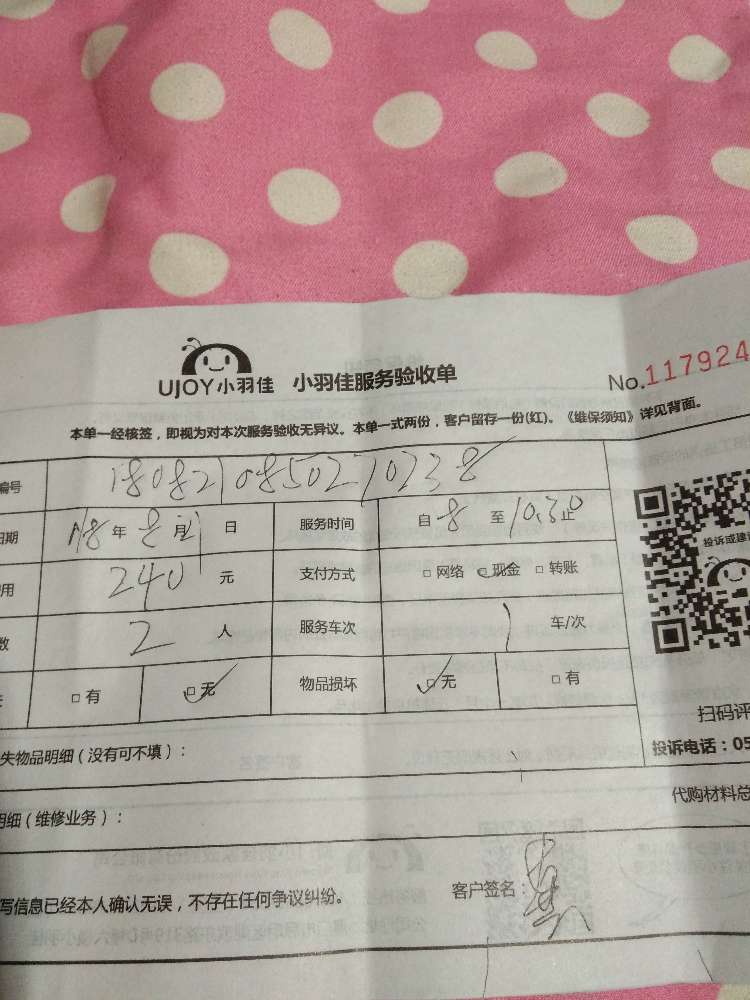 UJOY小羽佳 小羽佳服务验收单
No.117924
本单一经核签，即视为对本次服务验收无异议。本单一式两份，客户留存一份(红)。《维保须知》详见背面。
编号 1808210850270238
日期 18年8月21日 服务时间 自8至10:30止
用 240元 支付方式 □网络 □现金 □转账
数 2人 服务车次 1 车/次
□有 □无 物品损坏 □无 □有
投诉或建议
扫码评
失物品明细（没有可不填）： 投诉电话：05
明细（维修业务）： 代购材料总
写信息已经本人确认无误，不存在任何争议纠纷。 客户签名：